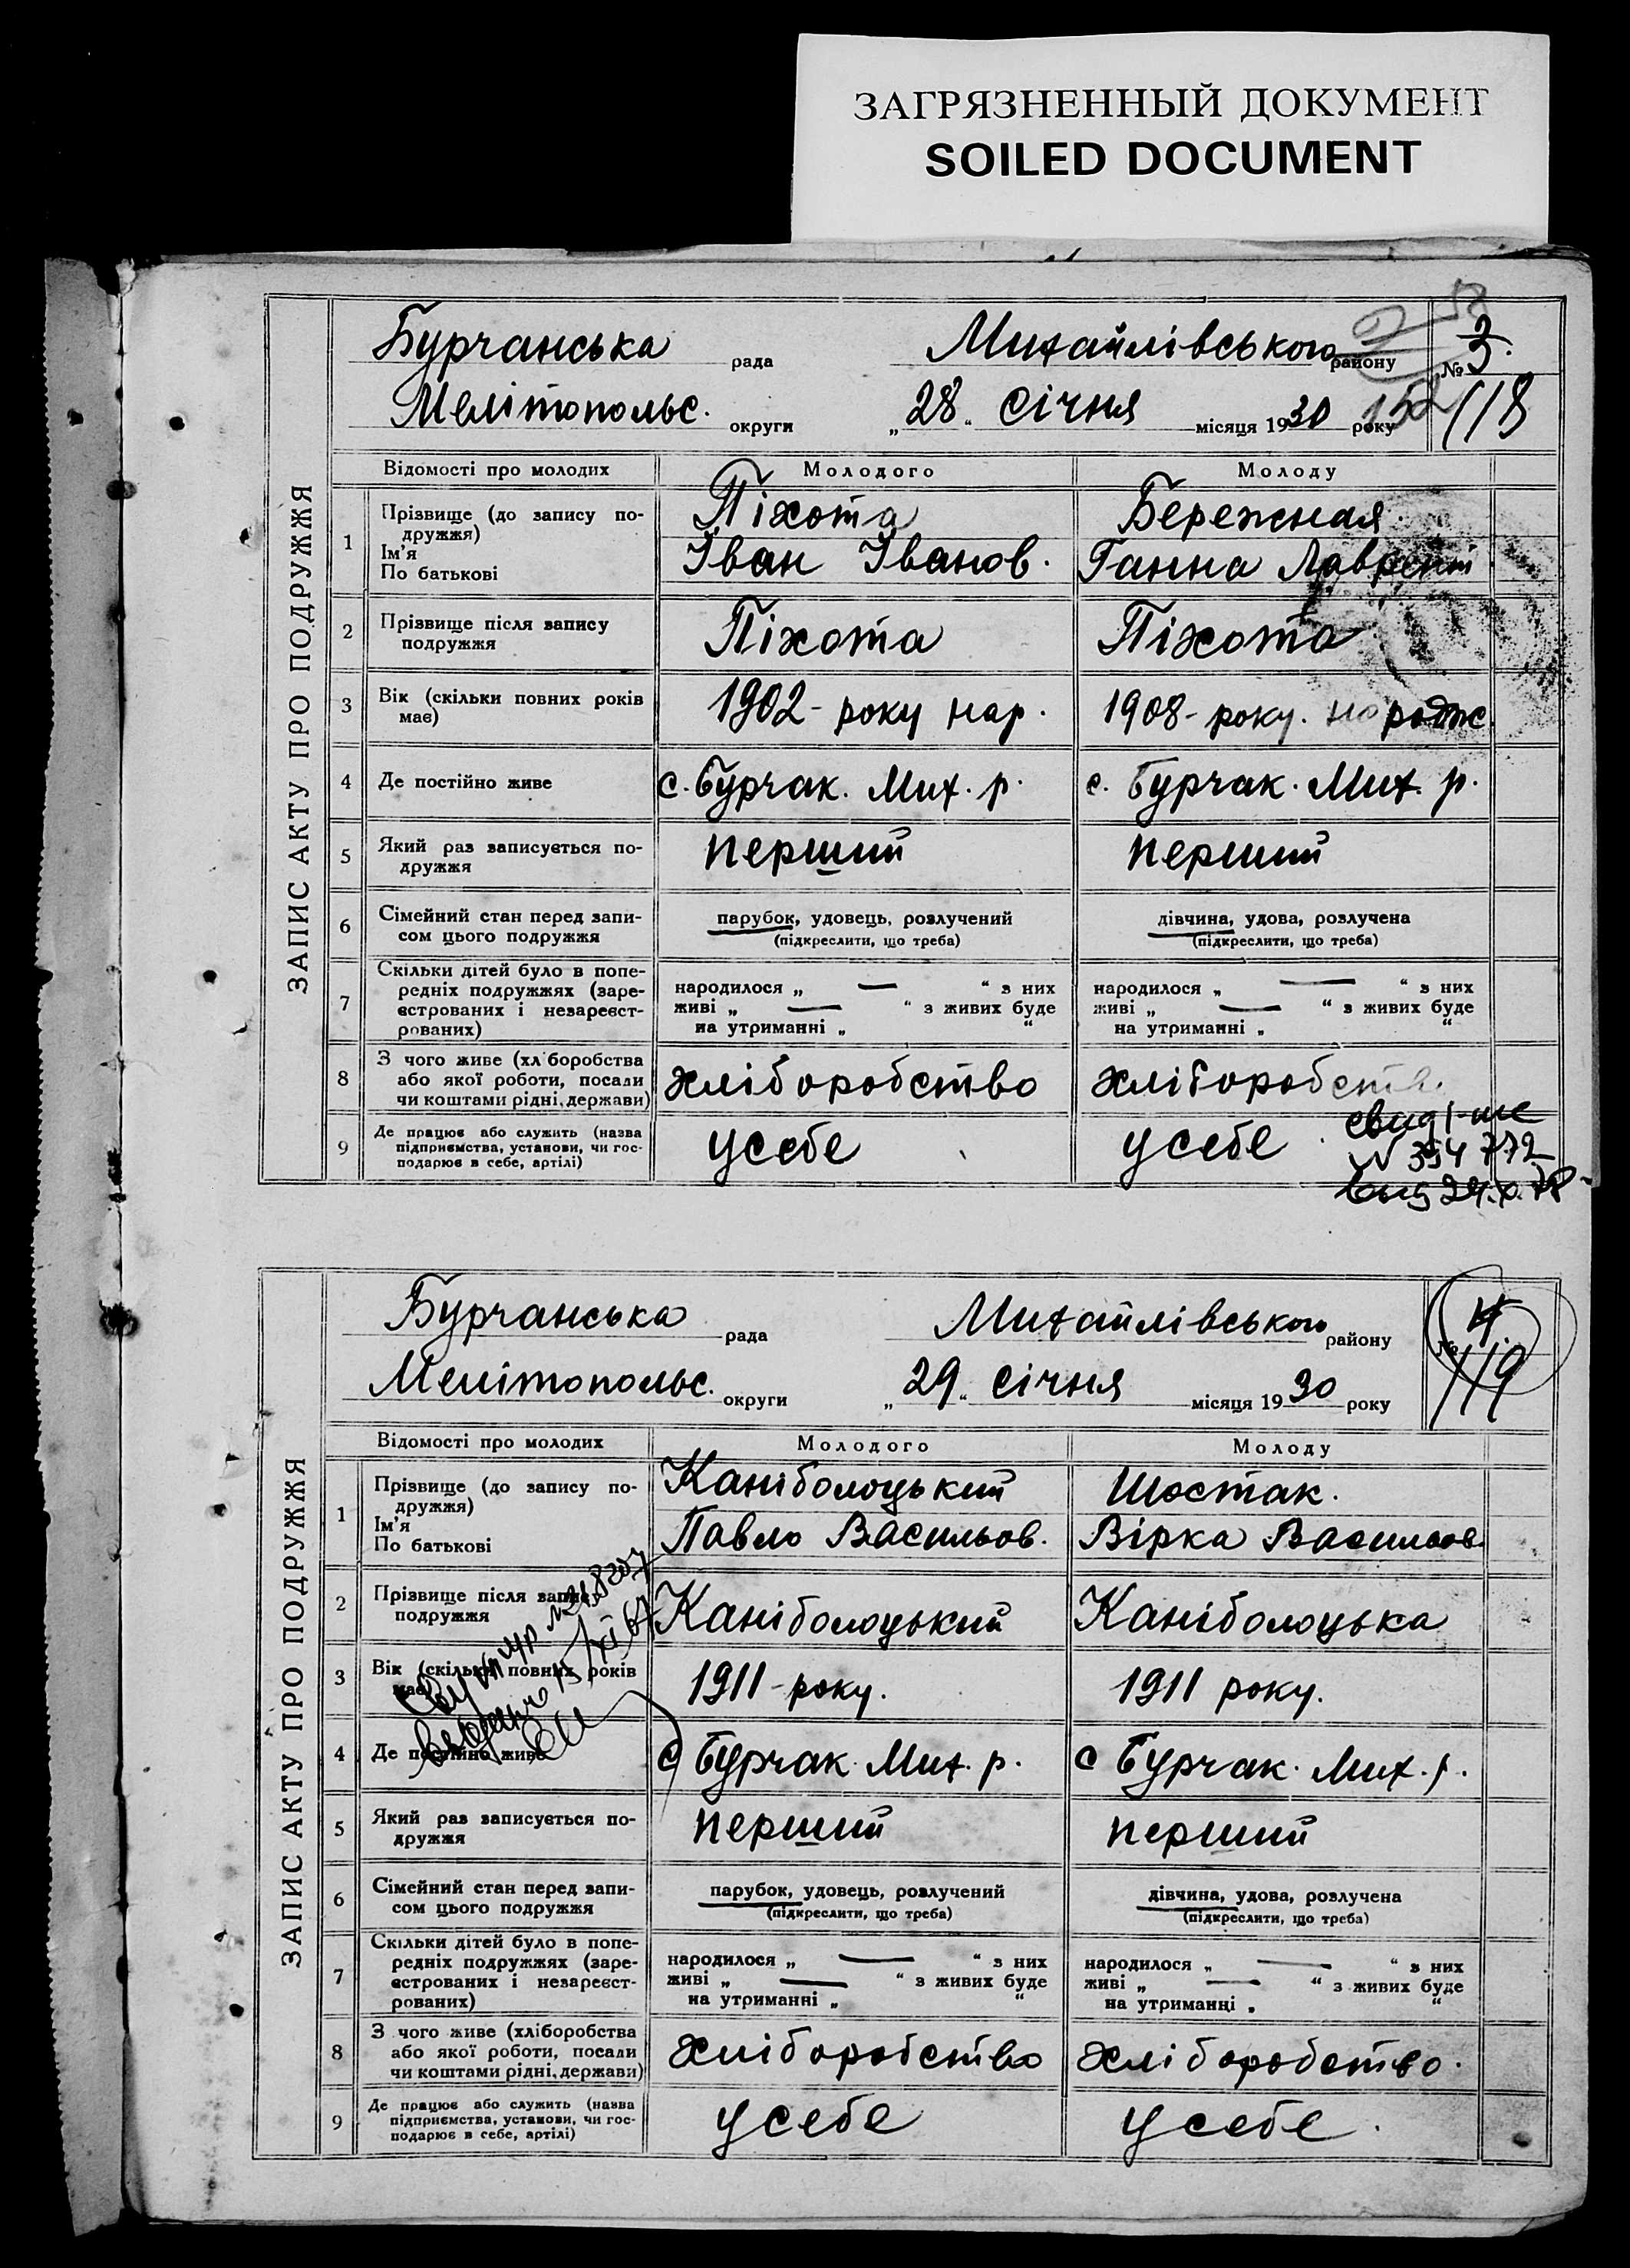 ЗАГРЯЗНЕННЫЙ ДОКУМЕНТ
SOILED DOCUMENT
ЗАПИС АКТУ ПРО ПОДРУЖЖЯ
Бурчанська рада Михайлівського району № 3.
Мелітопольс. округи „28“ січня місяця 1930 року 118
Відомості про молодих Молодого Молоду
1 Прізвище (до запису по- Піхота Бережная
дружжя)
Ім'я Іван Іванов. Ганна Лаврент
По батькові
2 Прізвище після запису Піхота Піхота
подружжя
3 Вік (скільки повних років 1902 - року нар. 1908 - року. народж.
має)
4 Де постійно живе с. Бурчак. Мих. р. с. Бурчак. Мих. р.
5 Який раз записується по- перший перший
дружжя
6 Сімейний стан перед запи- парубок, удовець, розлучений дівчина, удова, розлучена
сом цього подружжя (підкреслити, що треба) (підкреслити, що треба)
7 Скільки дітей було в попе-
редніх подружжях (заре- народилося „ — “ з них народилося „ — “ з них
єстрованих і незареєст- живі „ — “ з живих буде живі „ — “ з живих буде
рованих) на утриманні „ “ на утриманні „ “
8 З чого живе (хліборобства
або якої роботи, посади хліборобство хліборобств.
чи коштами рідні, держави)
9 Де працює або служить (назва
підприємства, установи, чи гос- усебе усебе
подарює в себе, артілі)
№ 354772
ЗАПИС АКТУ ПРО ПОДРУЖЖЯ
Бурчанська рада Михайлівського району № 4
Мелітопольс. округи „29“ січня місяця 1930 року 119
Відомості про молодих Молодого Молоду
1 Прізвище (до запису по- Каніболоцький Шостак.
дружжя)
Ім'я Павло Васильов. Вірка Васильов.
По батькові
2 Прізвище після запису Каніболоцький Каніболоцька
подружжя
3 Вік (скільки повних років 1911 - року. 1911 року.
має)
4 Де постійно живе с Бурчак. Мих. р. с Бурчак. Мих. р.
5 Який раз записується по- перший перший
дружжя
6 Сімейний стан перед запи- парубок, удовець, розлучений дівчина, удова, розлучена
сом цього подружжя (підкреслити, що треба) (підкреслити, що треба)
7 Скільки дітей було в попе-
редніх подружжях (заре- народилося „ — “ з них народилося „ — “ з них
єстрованих і незареєст- живі „ — “ з живих буде живі „ — “ з живих буде
рованих) на утриманні „ “ на утриманні „ “
8 З чого живе (хліборобства
або якої роботи, посади хліборобство хліборобство.
чи коштами рідні, держави)
9 Де працює або служить (назва
підприємства, установи, чи гос- усебе усебе.
подарює в себе, артілі)